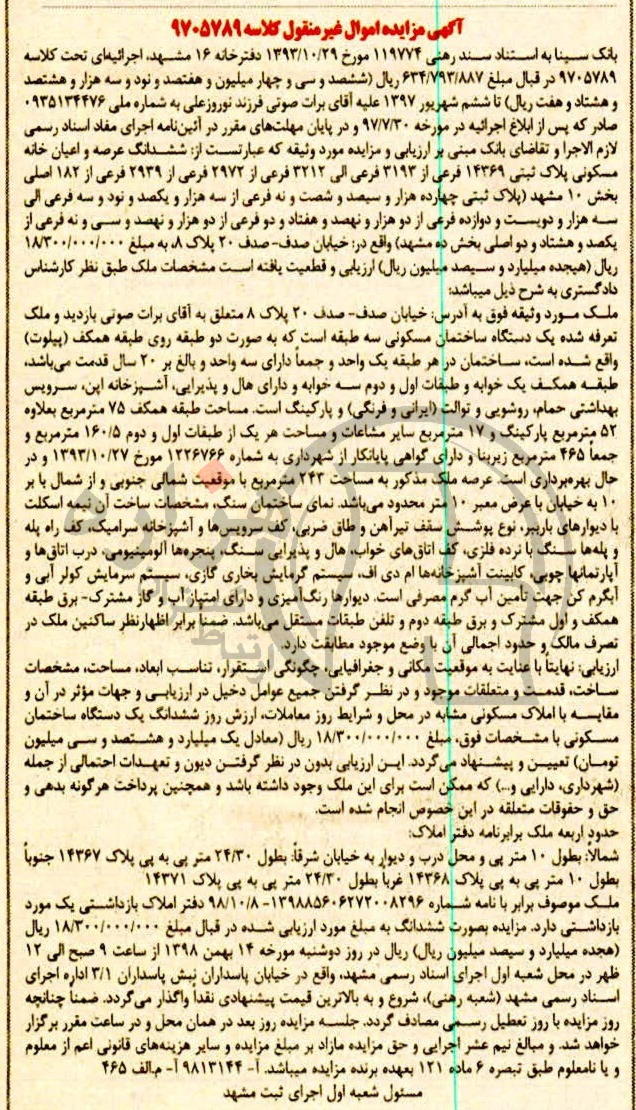 آگهی مزایده اموال غیر منقول کلاسه ۹۷۰۵۷۸۹
بانک سینا به استناد سند رهنی ۱۱۹۷۷۴ مورخ ۱۳۹۳/۱۰/۲۹ دفترخانه ۱۶ مشهد، اجرائیه‌ای تحت کلاسه
۹۷۰۵۷۸۹ در قبال مبلغ ۶۳۴/۷۹۳/۸۸۷ ریال (ششصد و سی و چهار میلیون و هفتصد و نود و سه هزار و هشتصد
و هشتاد و هفت ریال) تا ششم شهریور ۱۳۹۷ علیه آقای برات صوتی فرزند نوروزعلی به شماره ملی ۰۹۳۵۱۳۴۴۷۶
صادر که پس از ابلاغ اجرائیه در مورخه ۹۷/۷/۳۰ و در پایان مهلت‌های مقرر در آئین‌نامه اجرای مفاد اسناد رسمی
لازم الاجرا و تقاضای بانک مبنی بر ارزیابی و مزایده مورد وثیقه که عبارتست از: ششدانگ عرصه و اعیان خانه
مسکونی پلاک ثبتی ۱۴۳۶۹ فرعی از ۳۱۹۳ فرعی الی ۳۲۱۲ فرعی از ۲۹۷۲ فرعی از ۲۹۳۹ فرعی از ۱۸۲ اصلی
بخش ۱۰ مشهد (پلاک ثبتی چهارده هزار و سیصد و شصت و نه فرعی از سه هزار و یکصد و نود و سه فرعی الی
سه هزار و دویست و دوازده فرعی از دو هزار و نهصد و هفتاد و دو فرعی از دو هزار و نهصد و سی و نه فرعی از
یکصد و هشتاد و دو اصلی بخش ده مشهد) واقع در: خیابان صدف- صدف ۲۰ پلاک ۸، به مبلغ ۱۸/۳۰۰/۰۰۰/۰۰۰
ریال (هیجده میلیارد و سیصد میلیون ریال) ارزیابی و قطعیت یافته است مشخصات ملک طبق نظر کارشناس
دادگستری به شرح ذیل میباشد:
ملک مورد وثیقه فوق به آدرس: خیابان صدف- صدف ۲۰ پلاک ۸ متعلق به آقای برات صوتی بازدید و ملک
تعرفه شده یک دستگاه ساختمان مسکونی سه طبقه است که به صورت دو طبقه روی طبقه همکف (پیلوت)
واقع شده است، ساختمان در هر طبقه یک واحد و جمعاً دارای سه واحد و بالغ بر ۲۰ سال قدمت می‌باشد،
طبقه همکف یک خوابه و طبقات اول و دوم سه خوابه و دارای هال و پذیرایی، آشپزخانه اپن، سرویس
بهداشتی حمام، روشویی و توالت (ایرانی و فرنگی) و پارکینگ است. مساحت طبقه همکف ۷۵ مترمربع بعلاوه
۵۲ مترمربع پارکینگ و ۱۷ مترمربع سایر مشاعات و مساحت هر یک از طبقات اول و دوم ۱۶۰/۵ مترمربع و
جمعاً ۴۶۵ مترمربع زیربنا و دارای گواهی پایانکار از شهرداری به شماره ۱۲۲۶۷۶۶ مورخ ۱۳۹۳/۱۰/۲۷ و در
حال بهره‌برداری است. عرصه ملک مذکور به مساحت ۲۴۳ مترمربع با موقعیت شمالی جنوبی و از شمال با بر
۱۰ به خیابان با عرض معبر ۱۰ متر محدود می‌باشد. نمای ساختمان سنگ، مشخصات ساخت آن نیمه اسکلت
با دیوارهای باربیر، نوع پوشش سقف تیرآهن و طاق ضربی، کف سرویس‌ها و آشپزخانه سرامیک، کف راه پله
و پله‌ها سنگ با نرده فلزی، کف اتاق‌های خواب، هال و پذیرایی سنگ، پنجره‌ها آلومینیومی، درب اتاق‌ها و
آپارتمانها چوبی، کابینت آشپزخانه‌ها ام دی اف، سیستم گرمایش بخاری گازی، سیستم سرمایش کولر آبی و
آبگرم کن جهت تأمین آب گرم مصرفی است. دیوارها رنگ‌آمیزی و دارای امتیاز آب و گاز مشترک- برق طبقه
همکف و اول مشترک و برق طبقه دوم و تلفن طبقات مستقل می‌باشد. ضمناً برابر اظهارنظر ساکنین ملک در
تصرف مالک و حدود اجمالی آن با وضع موجود مطابقت دارد.
ارزیابی: نهایتاً با عنایت به موقعیت مکانی و جغرافیایی، چگونگی استقرار، تناسب ابعاد، مساحت، مشخصات
ساخت، قدمت و متعلقات موجود و در نظر گرفتن جمیع عوامل دخیل در ارزیابی و جهات مؤثر در آن و
مقایسه با املاک مسکونی مشابه در محل و شرایط روز معاملات، ارزش روز ششدانگ یک دستگاه ساختمان
مسکونی با مشخصات فوق، مبلغ ۱۸/۳۰۰/۰۰۰/۰۰۰ ریال (معادل یک میلیارد و هشتصد و سی میلیون
تومان) تعیین و پیشنهاد می‌گردد. این ارزیابی بدون در نظر گرفتن دیون و تعهدات احتمالی از جمله
(شهرداری، دارایی و...) که ممکن است برای این ملک وجود داشته باشد و همچنین پرداخت هرگونه بدهی و
حق و حقوقات متعلقه در این خصوص انجام شده است.
حدود اربعه ملک برابرنامه دفتر املاک:
شمالاً: بطول ۱۰ متر پی و محل درب و دیوار به خیابان شرقاً: بطول ۲۴/۳۰ متر پی به پی پلاک ۱۴۳۶۷ جنوباً
بطول ۱۰ متر پی به پی پلاک ۱۴۳۶۸ غرباً بطول ۲۴/۳۰ متر پی به پی پلاک ۱۴۳۷۱
ملک موصوف برابر با نامه شماره ۱۳۹۸۸۵۶۰۶۲۷۲۰۰۸۲۹۶- ۹۸/۱۰/۸ دفتر املاک بازداشتی یک مورد
بازداشتی دارد. مزایده بصورت ششدانگ به مبلغ مورد ارزیابی شده در قبال مبلغ ۱۸/۳۰۰/۰۰۰/۰۰۰ ریال
(هجده میلیارد و سیصد میلیون ریال) ریال در روز دوشنبه مورخه ۱۴ بهمن ۱۳۹۸ از ساعت ۹ صبح الی ۱۲
ظهر در محل شعبه اول اجرای اسناد رسمی مشهد، واقع در خیابان پاسداران نبش پاسداران ۳/۱ اداره اجرای
اسناد رسمی مشهد (شعبه رهنی)، شروع و به بالاترین قیمت پیشنهادی نقداً واگذار می‌گردد. ضمناً چنانچه
روز مزایده با روز تعطیل رسمی مصادف گردد. جلسه مزایده روز بعد در همان محل و در ساعت مقرر برگزار
خواهد شد. و مبالغ نیم عشر اجرایی و حق مزایده مازاد بر مبلغ مزایده و سایر هزینه‌های قانونی اعم از معلوم
و یا نامعلوم طبق تبصره ۶ ماده ۱۲۱ بعهده برنده مزایده میباشد. آ- ۹۸۱۳۱۴۴ آ- م.الف ۴۶۵
مسئول شعبه اول اجرای ثبت مشهد